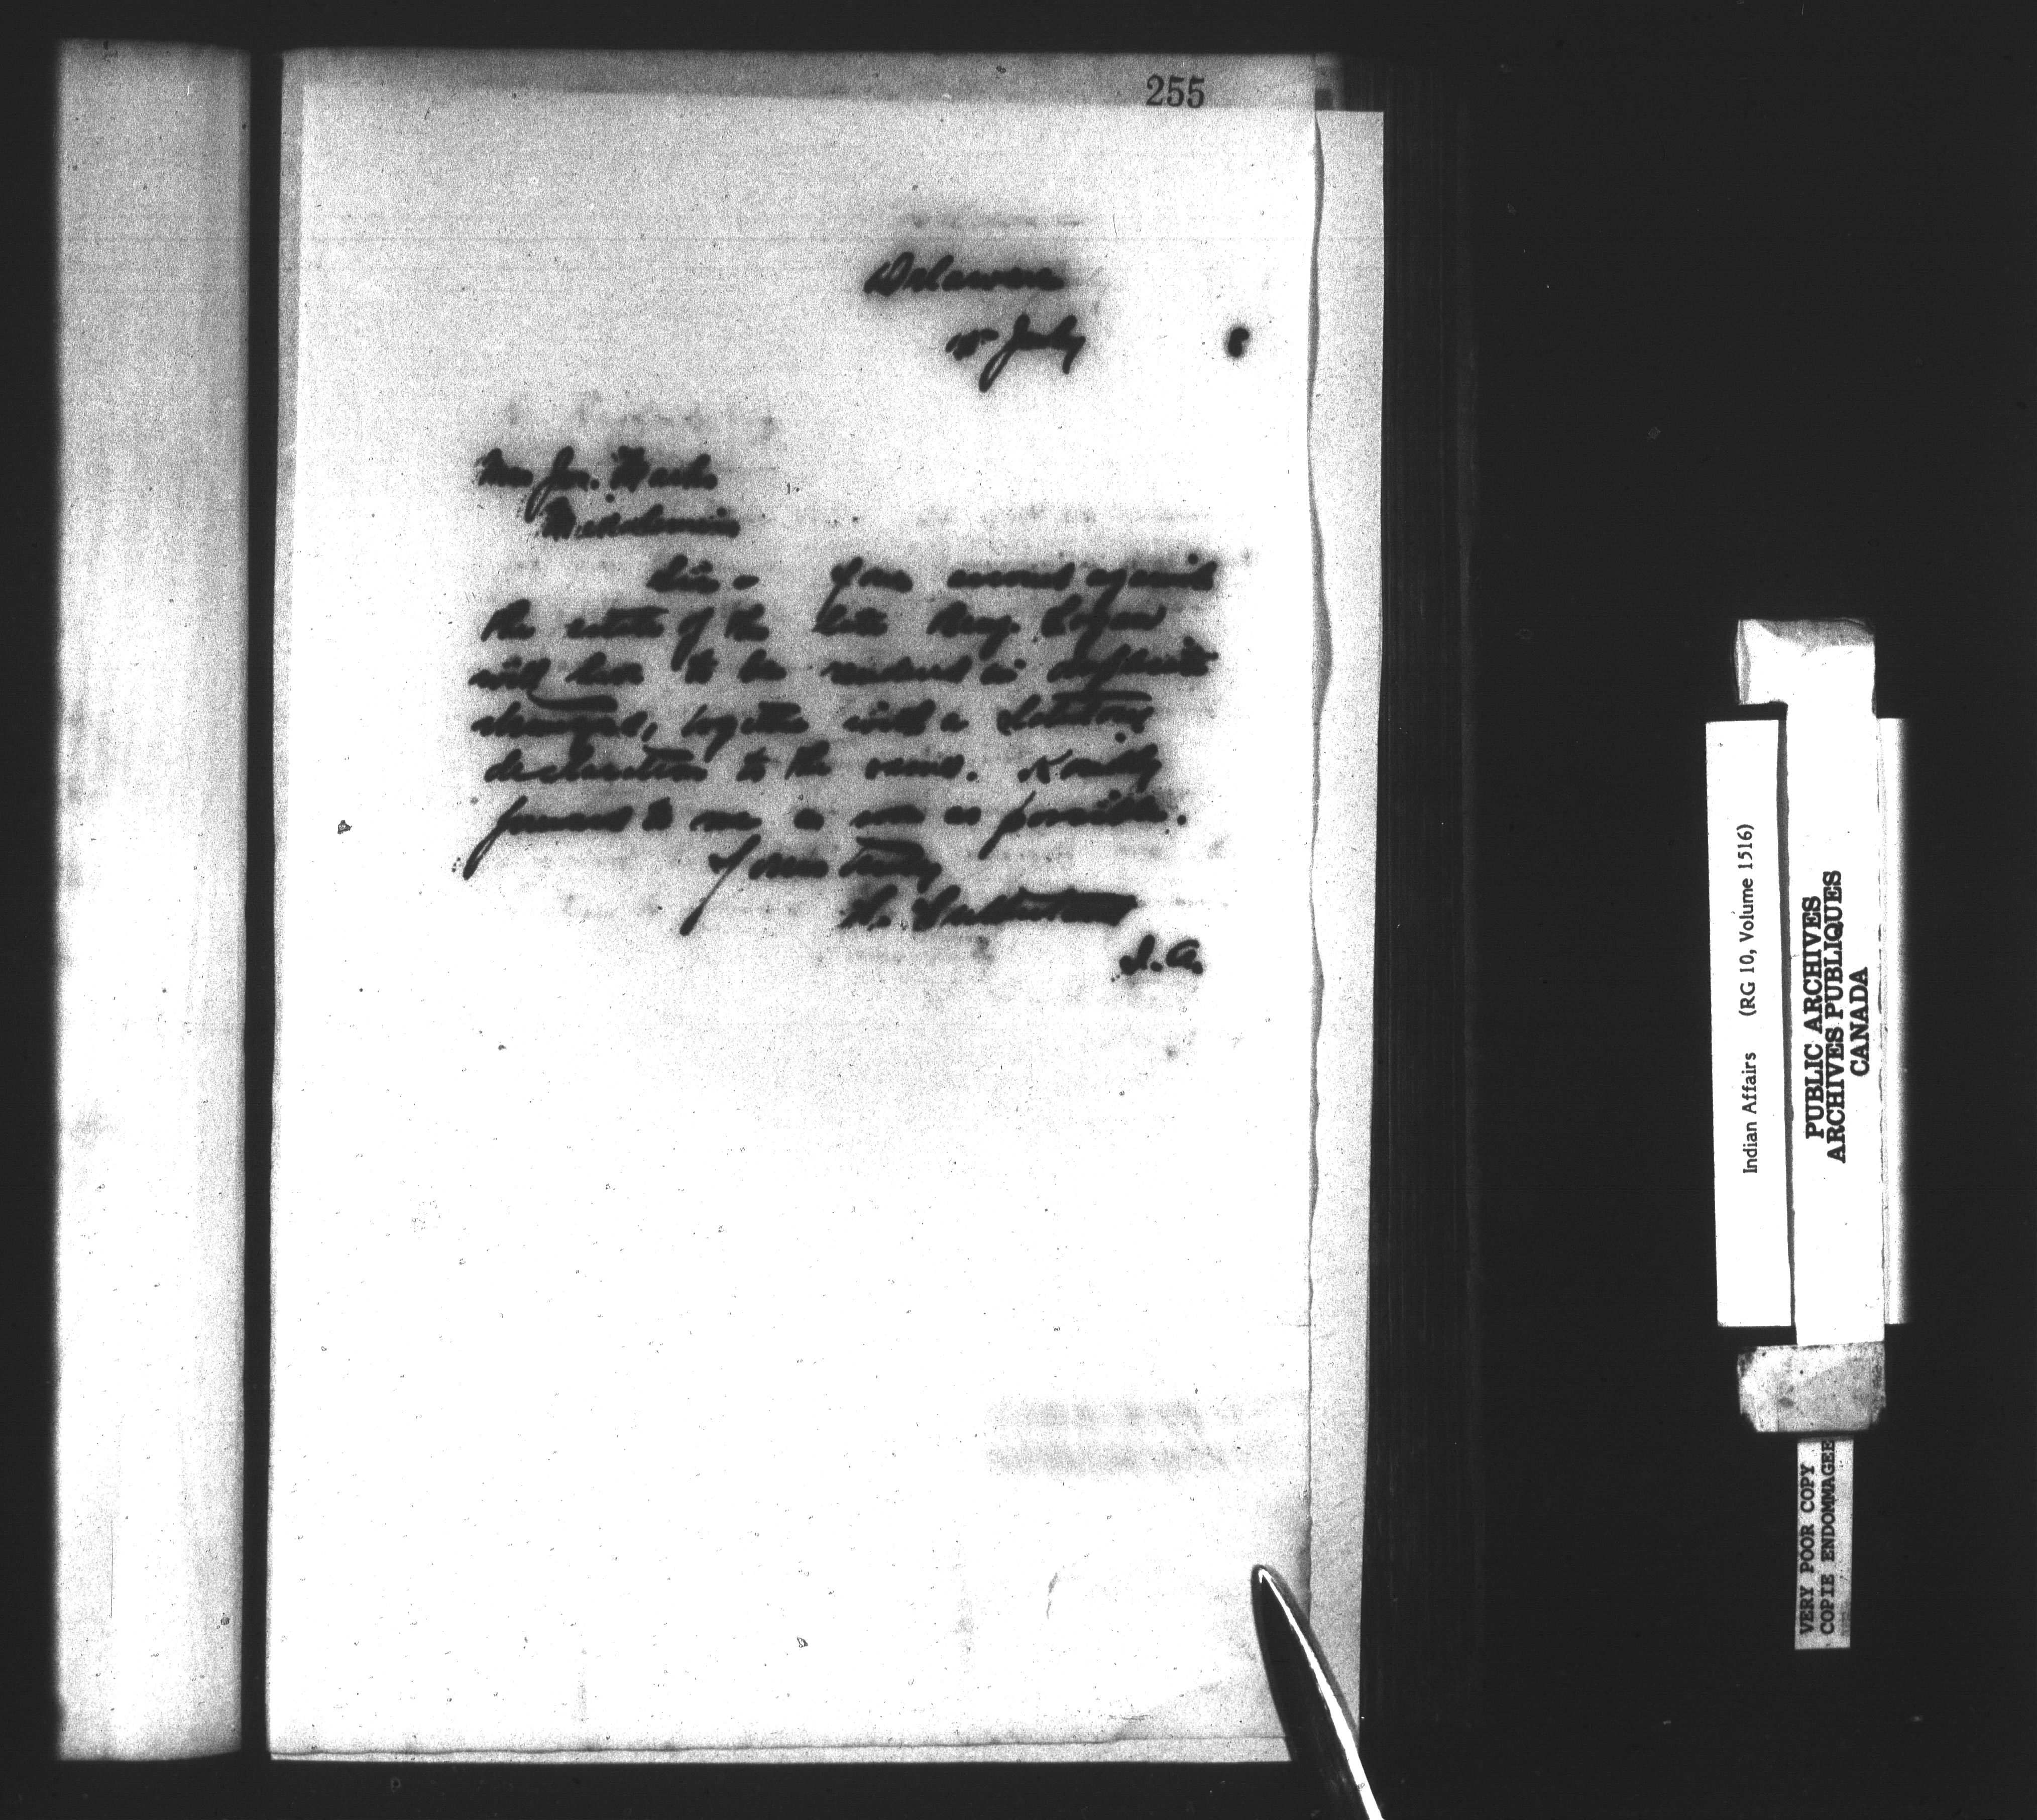 255
Delaware
July 8
Sir - Your account against
the estate of the late
will have to be rendered in duplicate
together with a Statutory
declaration to the same. Kindly
forward to me as soon as possible.
Yours truly
I.A.
Indian Affairs (RG 10, Volume 1516)
PUBLIC ARCHIVES
ARCHIVES PUBLIQUES
CANADA
VERY POOR COPY
COPIE ENDOMMAGEE